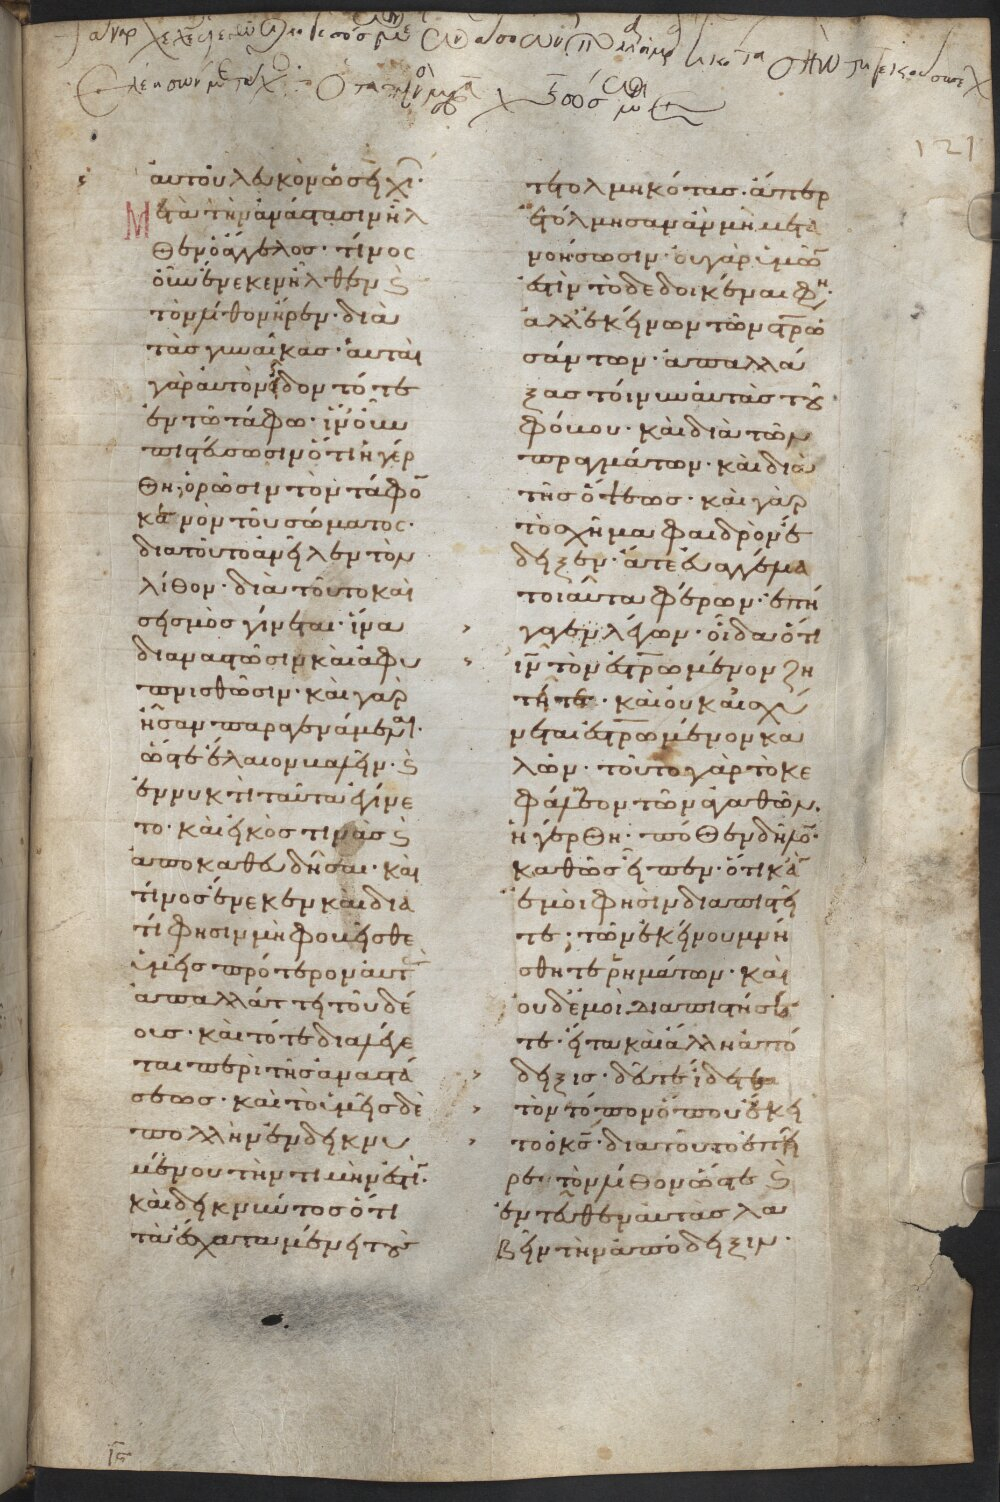 121
αυτοῦ λευκὸν ὡσεὶ χιών·
Μετὰ τὴν ἀνάστασιν ἦλ
θεν ὁ ἄγγελος· τίνος
οὖν ἕνεκεν ἦλθεν καὶ
τὸν λίθον ἦρεν· διὰ
τὰς γυναῖκας· αὗται
γὰρ αὐτὸν εἶδον τότε
ἐν τῶ τάφω· ἵν' οὖν
πιστεύσωσιν ὅτι ἠγέρ
θη· ὁρῶσιν τὸν τάφον
κενὸν τοῦ σώματος·
διατοῦτο ἀνεῖλεν τὸν
λίθον· διὰ τοῦτο καὶ
σεισμὸς γίνεται· ἵνα
διαναστῶσιν καὶ ἀφυ
πνισθῶσιν· καὶ γὰρ
ἦσαν παραγενάμεναι·
ὥστε ἔλαιον βαλεῖν· καὶ
ἐν νυκτὶ ταῦτα ἐγίνε
το· καὶ εἰκὸς τινὰς καὶ
ἀποκαθευδῆσαι· καὶ
τίνος ἕνεκεν καὶ δια
τί φησιν μὴ φοβεῖσθε
ὑμεῖς πρότερον αὐτὰς
ἀπαλλάττει τοῦ δέ
ους· καὶ τότε διαλέγε
ται περὶ τῆς ἀναστά
σεως· καὶ τὸ ὑμεῖς δὲ
πολλὴν ἐνδεικνυ
μένου τὴν τιμὴν ἐστίν·
καὶ δεικνύντος ὅτι
τὰ ἔσχατα μένει τοὺς
τετολμηκότας· ἅπερ
ἐτόλμησαν ἂν μὴ μετα
νοήσωσιν· οὐ γὰρ ὑμῶν
ἐστὶν τὸ δεδοικέναι φησίν·
ἀλλ' ἐκείνων τῶν σταυρω
σάντων· ἀπαλλά
ξας τοίνυν αὐτὰς τοῦ
φόβου· καὶ διὰ τῶν
πραγμάτων· καὶ διὰ
τῆς ὄψεως· καὶ γὰρ
τὸ σχῆμα φαιδρὸν ἔ
δειξεν· ἅτε εὐαγγέλια
τοιαῦτα φέρων· ἐπή
γαγεν λέγων· οἶδα ὅτι
ιν τὸν ἐσταυρωμένον ζη
τεῖτε· καὶ οὐκ αἰσχύ
νεται ἐσταυρωμένον κα
λῶν· τοῦτο γὰρ τὸ κε
φάλαιον τῶν ἀγαθῶν·
ἠγέρθη· πόθεν δῆλον·
καθὼς εἶπεν· ὅτι κἂν
ἐμοὶ φησὶν διαπιστεῖ
τε· τῶν ἐκείνου μνή
σθητε ῥημάτων· καὶ
οὐδὲ ἐμοὶ διαπιστήσε
τε· εἶτα καὶ ἄλλη ἀπό
δειξις· δεῦτε ἴδετε
τὸν τόπον ὅπου ἔκει
το ὁ κς· διατοῦτο ἐπῆ
ρε τὸν λίθον ὥστε καὶ
ἐντεῦθεν αὐτὰς λα
βεῖν τὴν ἀπόδειξιν·
ις